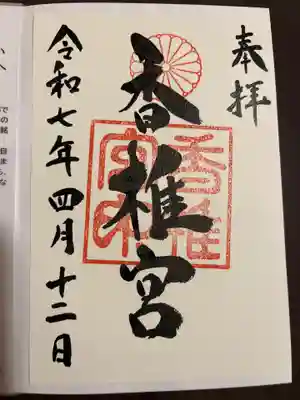 奉拝
香椎宮
香椎宮印
令和七年四月十二日